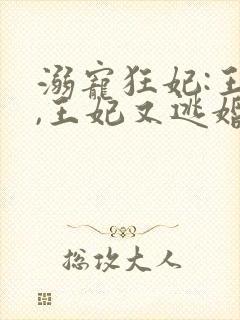 溺寵狂妃:王
,王妃又逃婚
总攻大人